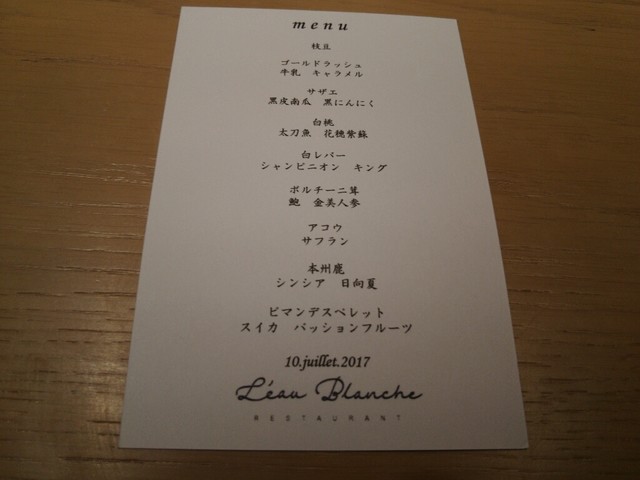 menu
枝豆
ゴールドラッシュ
牛乳 キャラメル
サザエ
黒皮南瓜 黒にんにく
白桃
太刀魚 花穂紫蘇
白レバー
シャンピニオン キング
ポルチーニ茸
鮑 金美人参
アコウ
サフラン
本州鹿
シンシア 日向夏
ピマンデスペレット
スイカ パッションフルーツ
10.juillet.2017
L'eau Blanche
RESTAURANT